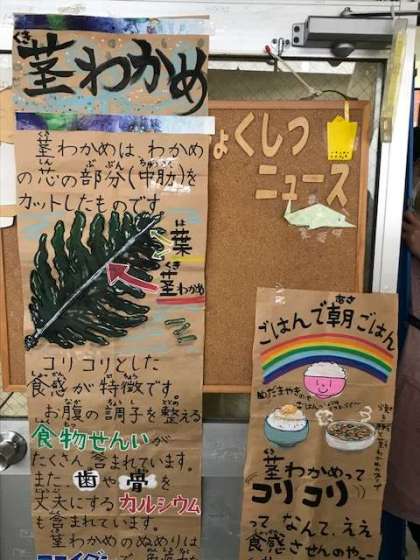 茎わかめ
くき
茎わかめは、わかめ
の芯の部分(中肋)を
カットしたものです
葉
茎わかめ
コリコリとした
食感が特徴です
お腹の調子を整える
食物せんいが
たくさん含まれています。
また、歯や骨を
丈夫にするカルシウム
も含まれています。
茎わかめのぬめりは
くしつ
ニュース
ごはんで朝ごはん
めだまやき
茎わかめって
コリコリ
って、なんて、ええ
食感さすんのや。